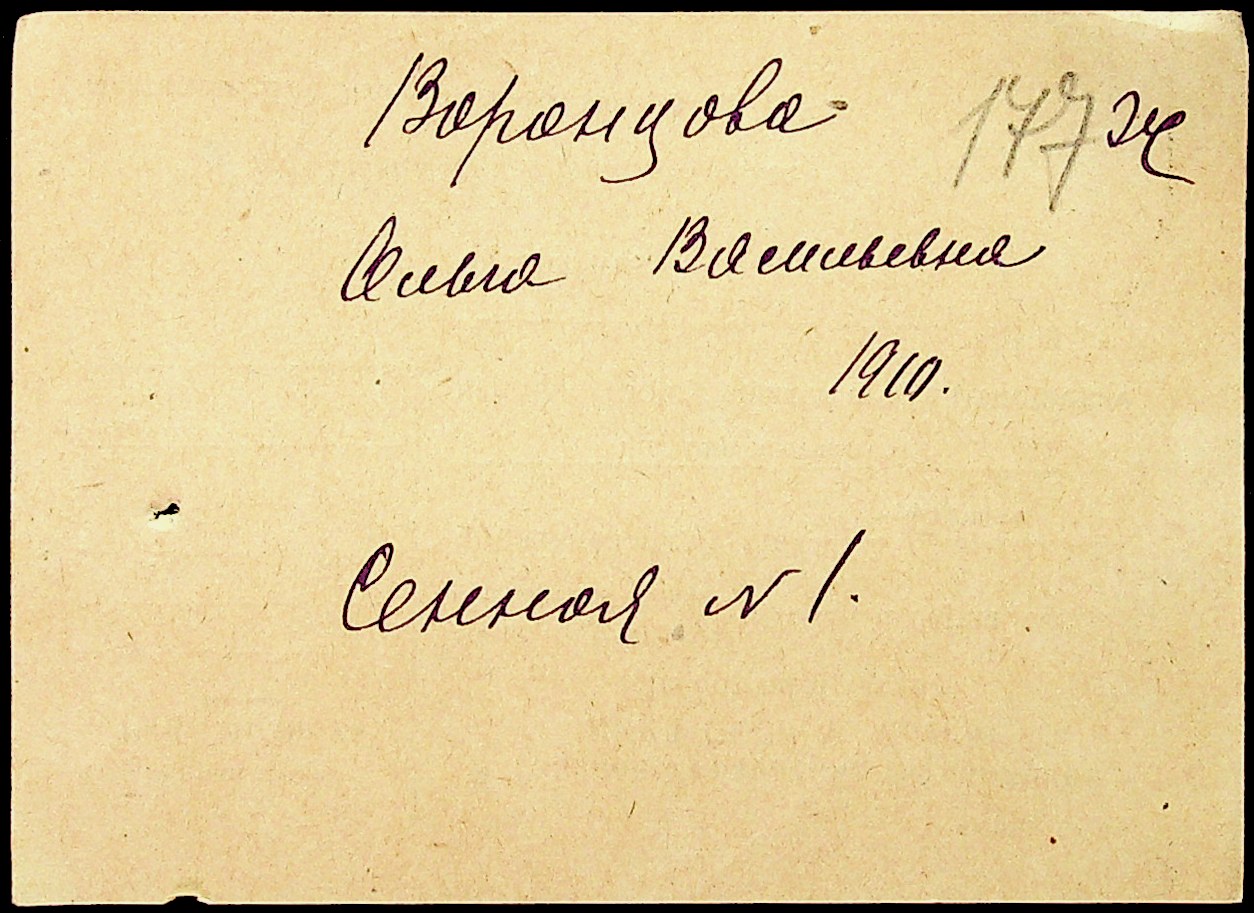 Воронцова 177 ж
Ольга Васильевна
1910.
Сенная N 1.